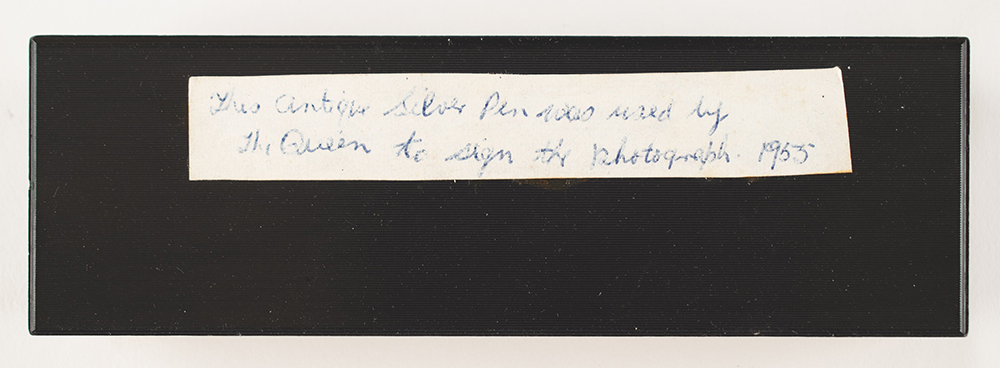 This Antique Silver Pen was used by
The Queen to sign the photograph. 1955